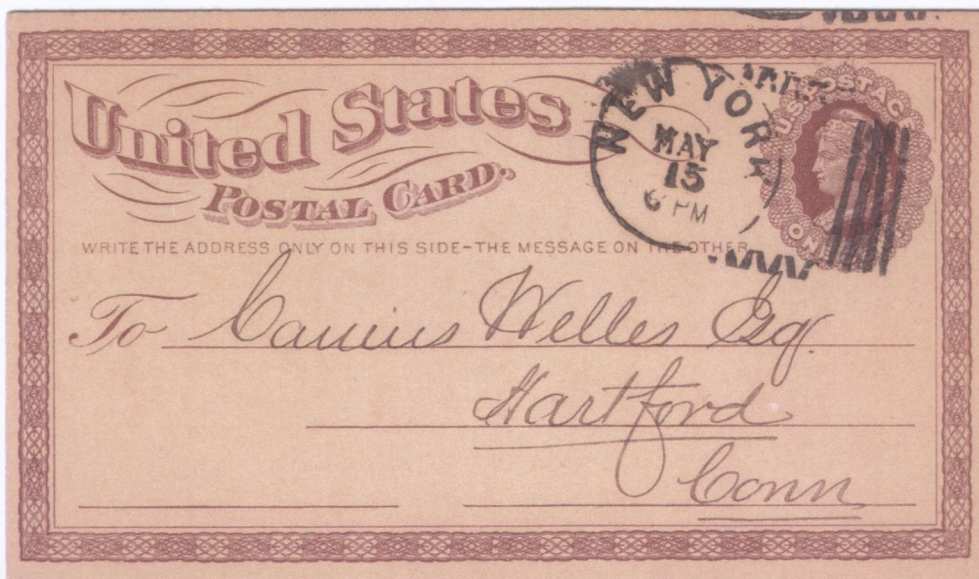 United States
POSTAL CARD.
NEW YORK
MAY
15
6 PM
U.S. POSTAGE
ONE
WRITE THE ADDRESS ONLY ON THIS SIDE-THE MESSAGE ON THE OTHER
To Welles Esq.
Hartford
Conn